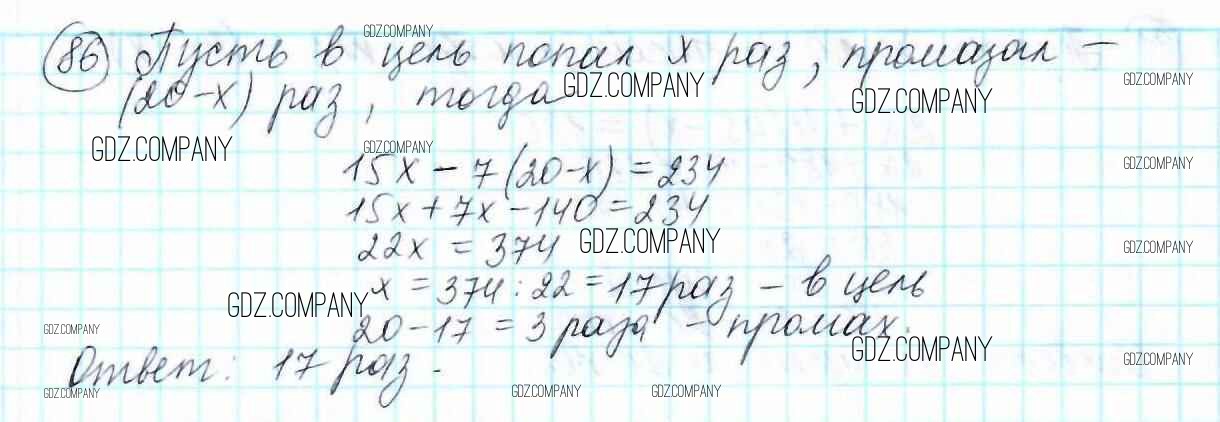 GDZ.COMPANY
86 Пусть в цель попал x раз, промазал –
GDZ.COMPANY GDZ.COMPANY
(20-x) раз, тогда GDZ.COMPANY
GDZ.COMPANY GDZ.COMPANY
15x - 7(20-x) = 234 GDZ.COMPANY
15x + 7x - 140 = 234
22x = 374 GDZ.COMPANY GDZ.COMPANY
x = 374 : 22 = 17 раз – в цель
GDZ.COMPANY
GDZ.COMPANY 20 - 17 = 3 раза – промах.
Ответ: 17 раз. GDZ.COMPANY GDZ.COMPANY
GDZ.COMPANY GDZ.COMPANY GDZ.COMPANY